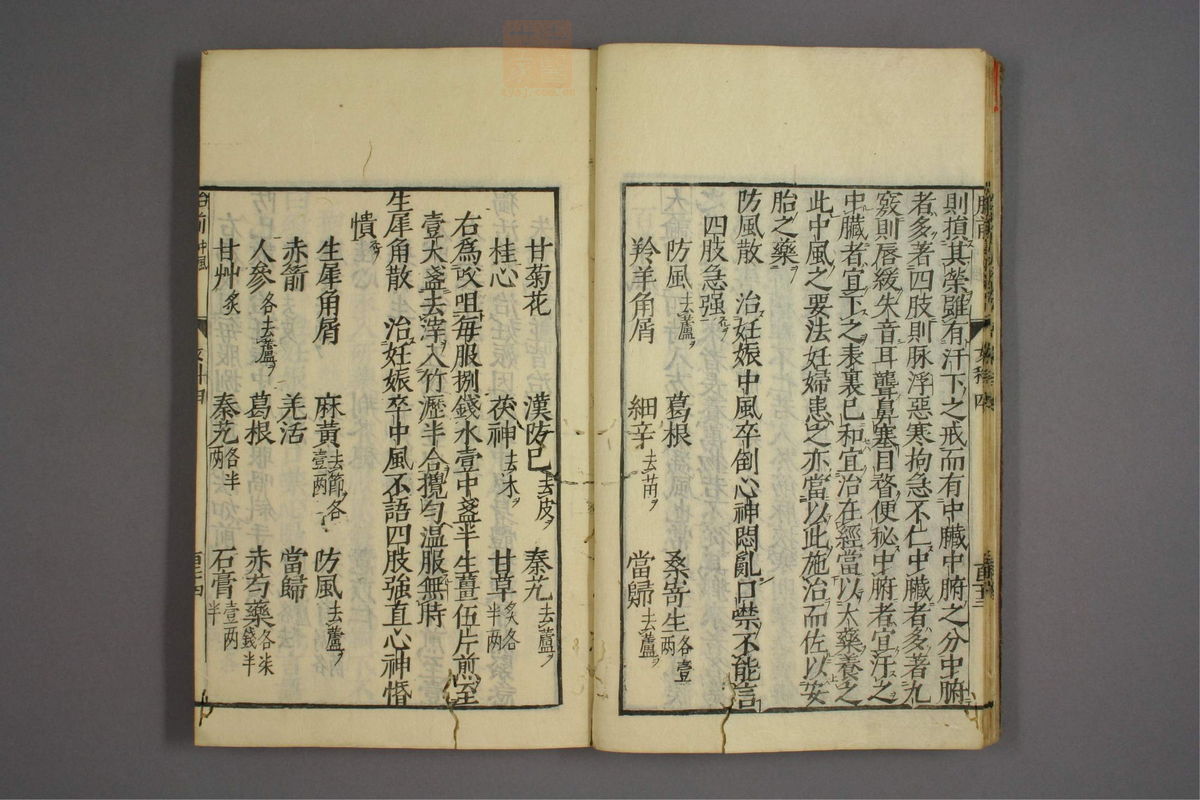 則損其榮雖有汗下之戒而有中臟中腑之分中腑
者多著四肢則脉浮惡寒拘急不仁中臟者多著九
竅則唇緩失音耳聾鼻塞目瞀便秘中腑者宜汗之
中臟者宜下之表裏已和宜治在經當以大藥養之
此中風之要法妊婦患之亦當以此施治而佐以安
胎之藥
防風散 治妊娠中風卒倒心神悶亂口噤不能言
四肢急强
防風去蘆 葛根 桑寄生各壹两
羚羊角屑 細辛去苗 當歸去蘆
甘菊花 漢防已去皮 秦艽去蘆
桂心 茯神去木 甘草炙各半两
右爲㕮咀每服捌錢水壹中盞半生薑伍片煎至
壹大盞去滓入竹瀝半合攪匀温服無時
生犀角散 治妊娠卒中風不語四肢強直心神惛
憒
生犀角屑 麻黃去節各壹两 防風去蘆
赤箭 羌活 當歸
人參各去蘆 葛根 赤芍藥各柒錢半
甘艸炙 秦艽各半两 石膏壹两半